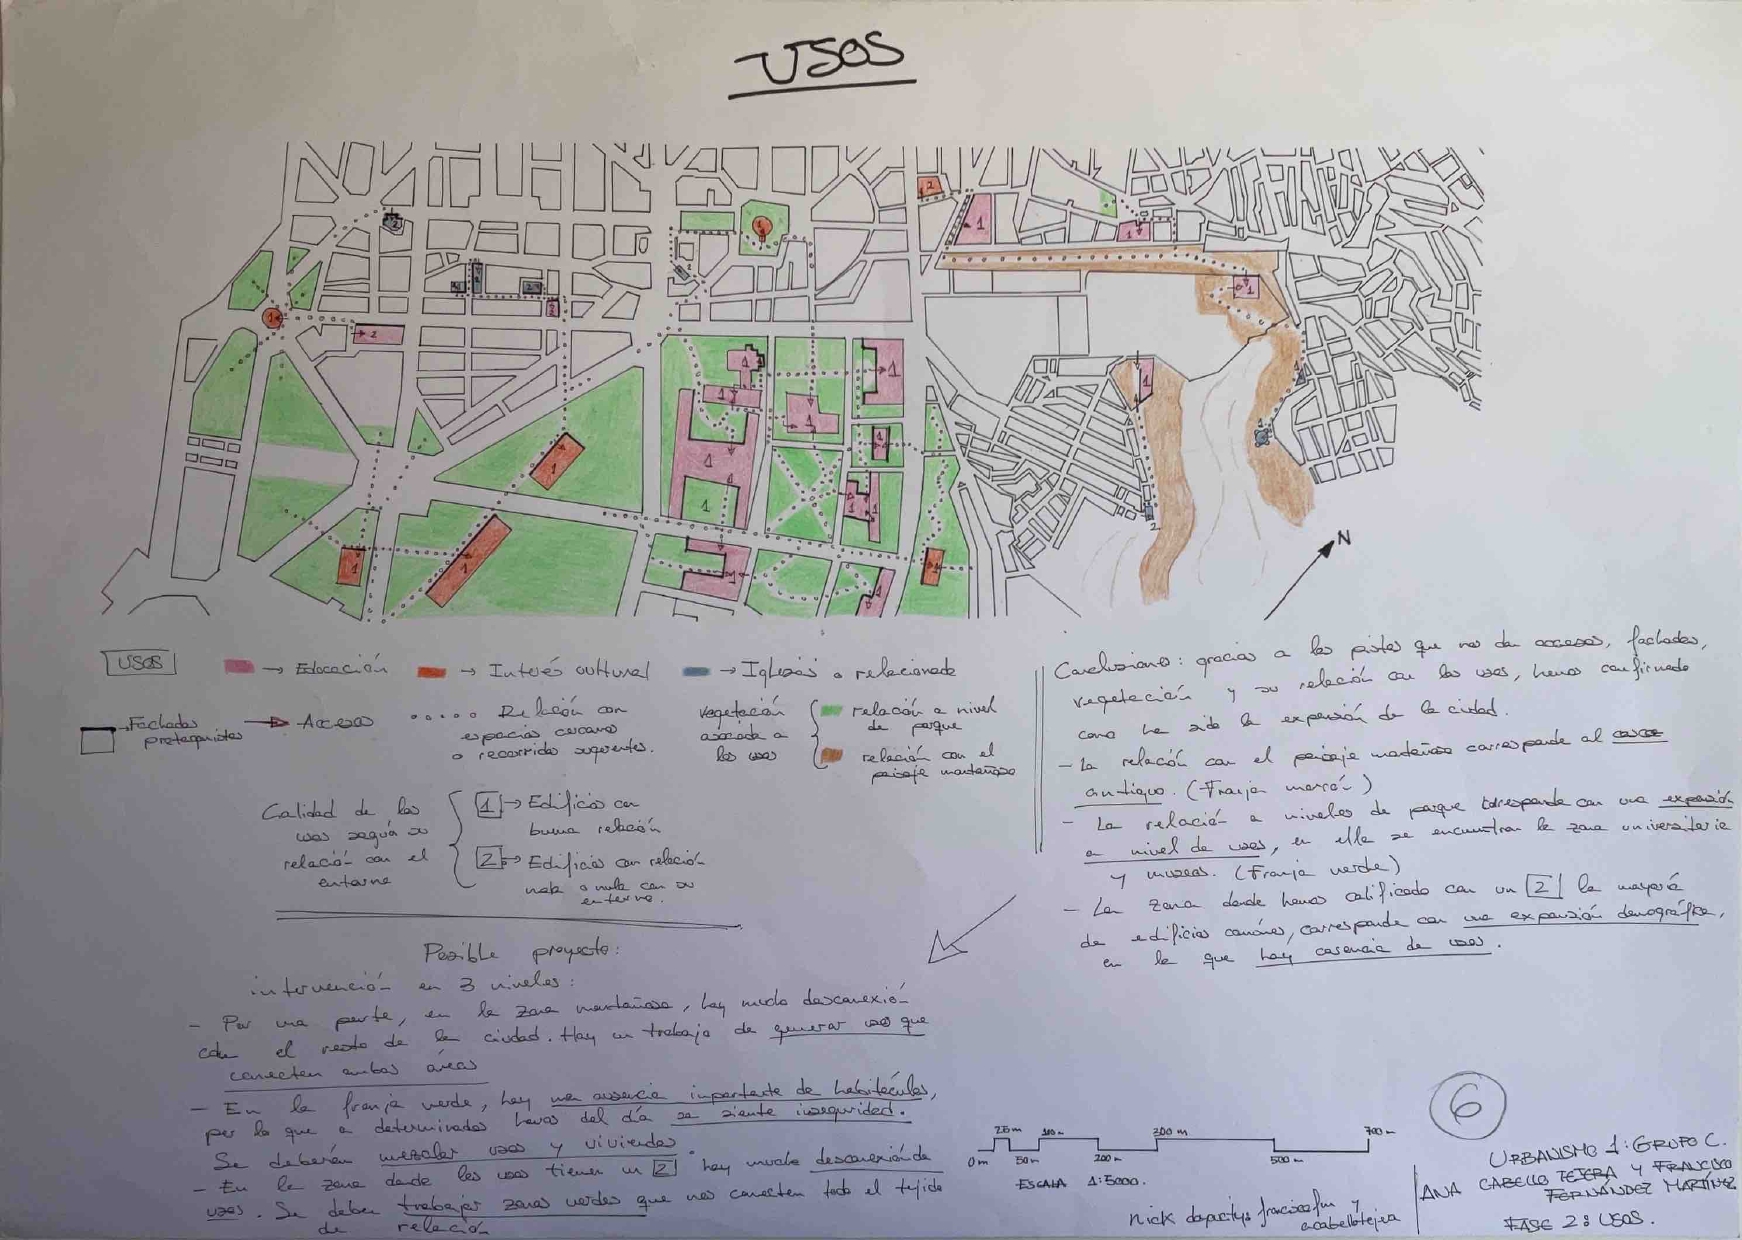 USOS
USOS
→ Educación
→ Interés cultural
→ Iglesias o relacionado
→ Fachadas
protagonistas
→ Accesos
Relación con
espacios cercanos
o recorridos sugerentes.
vegetación
asociada a
los usos
relación a nivel
de parque
relación con el
paisaje montañoso
Calidad de los
usos según su
relación con el
entorno
1 → Edificios con
buena relación
2 → Edificios con relación
mala o nula con su
entorno.
Conclusiones: gracias a las pistas que nos dan accesos, fachadas,
vegetación y su relación con los usos, hemos confirmado
como ha sido la expansión de la ciudad.
- La relación con el paisaje montañoso corresponde al casco
antiguo. (Franja marrón)
- La relación a niveles de parque corresponde con una expansión
a nivel de usos, en ella se encuentran la zona universitaria
y museos. (Franja verde)
- La zona donde hemos calificado con un 2 la mayoría
de edificios comunes, corresponde con una expansión demográfica,
en la que hay carencia de usos.
Posible proyecto:
intervención en 3 niveles:
- Por una parte, en la zona montañosa, hay mucha desconexión
con el resto de la ciudad. Hay un trabajo de generar usos que
conecten ambas áreas
- En la franja verde, hay una ausencia importante de habitáculos,
por lo que a determinadas horas del día se siente inseguridad.
Se deberán mezclar usos y viviendas.
- En la zona donde los usos tienen un 2 hay mucha desconexión de
usos. Se deben trabajar zonas verdes que nos conecten todo el tejido
de relación
N
0m 25m 50m 100m 200m 300m 500m 700m
ESCALA 1:5000.
6
URBANISMO 1: GRUPO C.
ANA CABELLO TEJERA Y FRANCISCO
FERNÁNDEZ MARTÍNEZ
FASE 2: USOS.
nick dapactys franciscofm y
acabellotejera